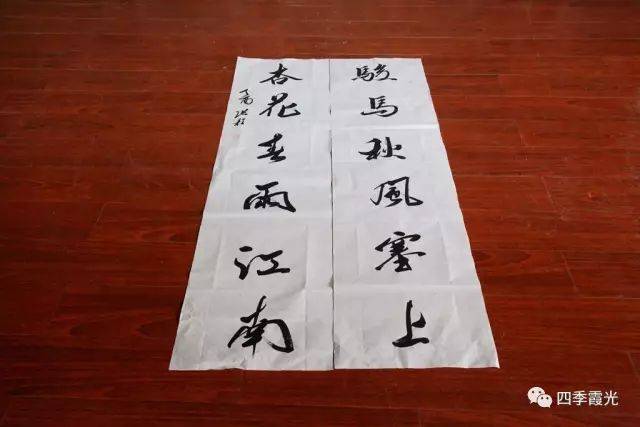 駿馬秋風塞上
杏花春雨江南
四季霞光